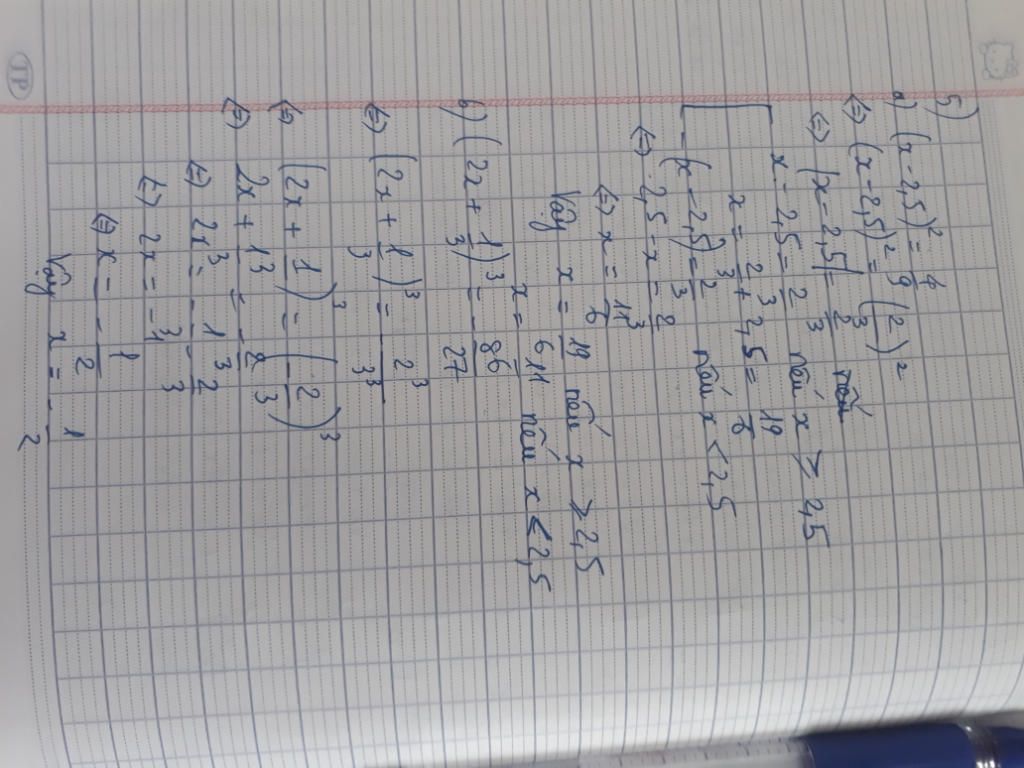 5)
a) (x-2,5)² = 4/9
⇔ (x-2,5)² = (2/3)²
⇔ |x-2,5| = 2/3
x-2,5 = 2/3 nếu x ≥ 2,5
x = 2/3 + 2,5 = 19/6
-(x-2,5) = 2/3 nếu x < 2,5
⇔ 2,5 - x = 2/3
⇔ x = 11/6
Vậy x = 19/6 nếu x ≥ 2,5
x = 11/6 nếu x < 2,5
b) (2x + 1/3)³ = - 8/27
⇔ (2x + 1/3)³ = - 2³/3³
⇔ (2x + 1/3)³ = (- 2/3)³
⇔ 2x + 1/3 = - 2/3
⇔ 2x = - 1/3 - 2/3
⇔ 2x = -1
⇔ x = - 1/2
Vậy x = - 1/2
TP